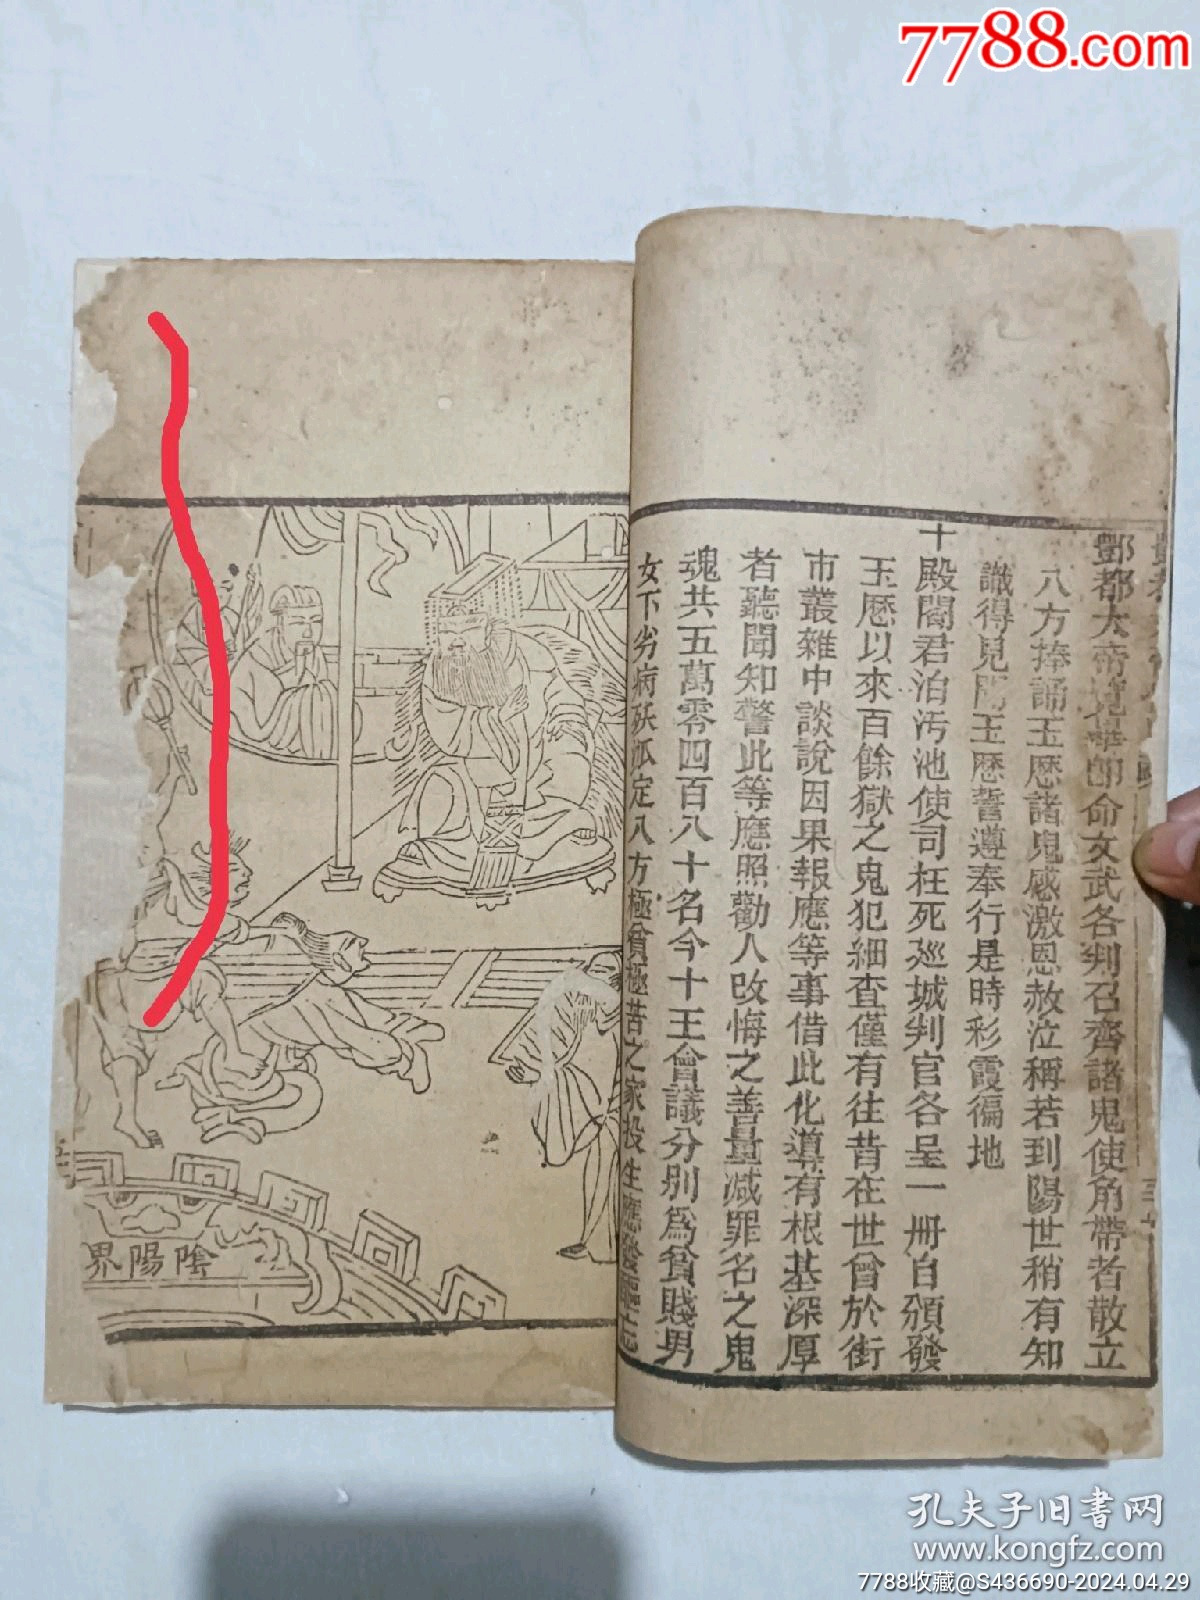 7788.com
酆都大帝
即命文武各判召齊諸鬼使角帶者散立
八方捧誦玉歷諸鬼感激恩赦泣稱若到陽世稍有知
識得見
玉歷誓遵奉行是時彩霞徧地
十殿閻君泊汚池使司枉死巡城判官各呈一冊自頒發
玉歷以來百餘獄之鬼犯細查僅有往昔在世曾於街
市叢雜中談說因果報應等事借此化導有根基深厚
者聽聞知警此等應照勸人改悔之善量減罪名之鬼
魂共五萬零四百八十名今十王會議分別為貧賤男
女下劣病殀孤定八方極貧極苦之家投生應發
陰陽界
孔夫子旧书网
www.kongfz.com
7788收藏@S436690-2024.04.29